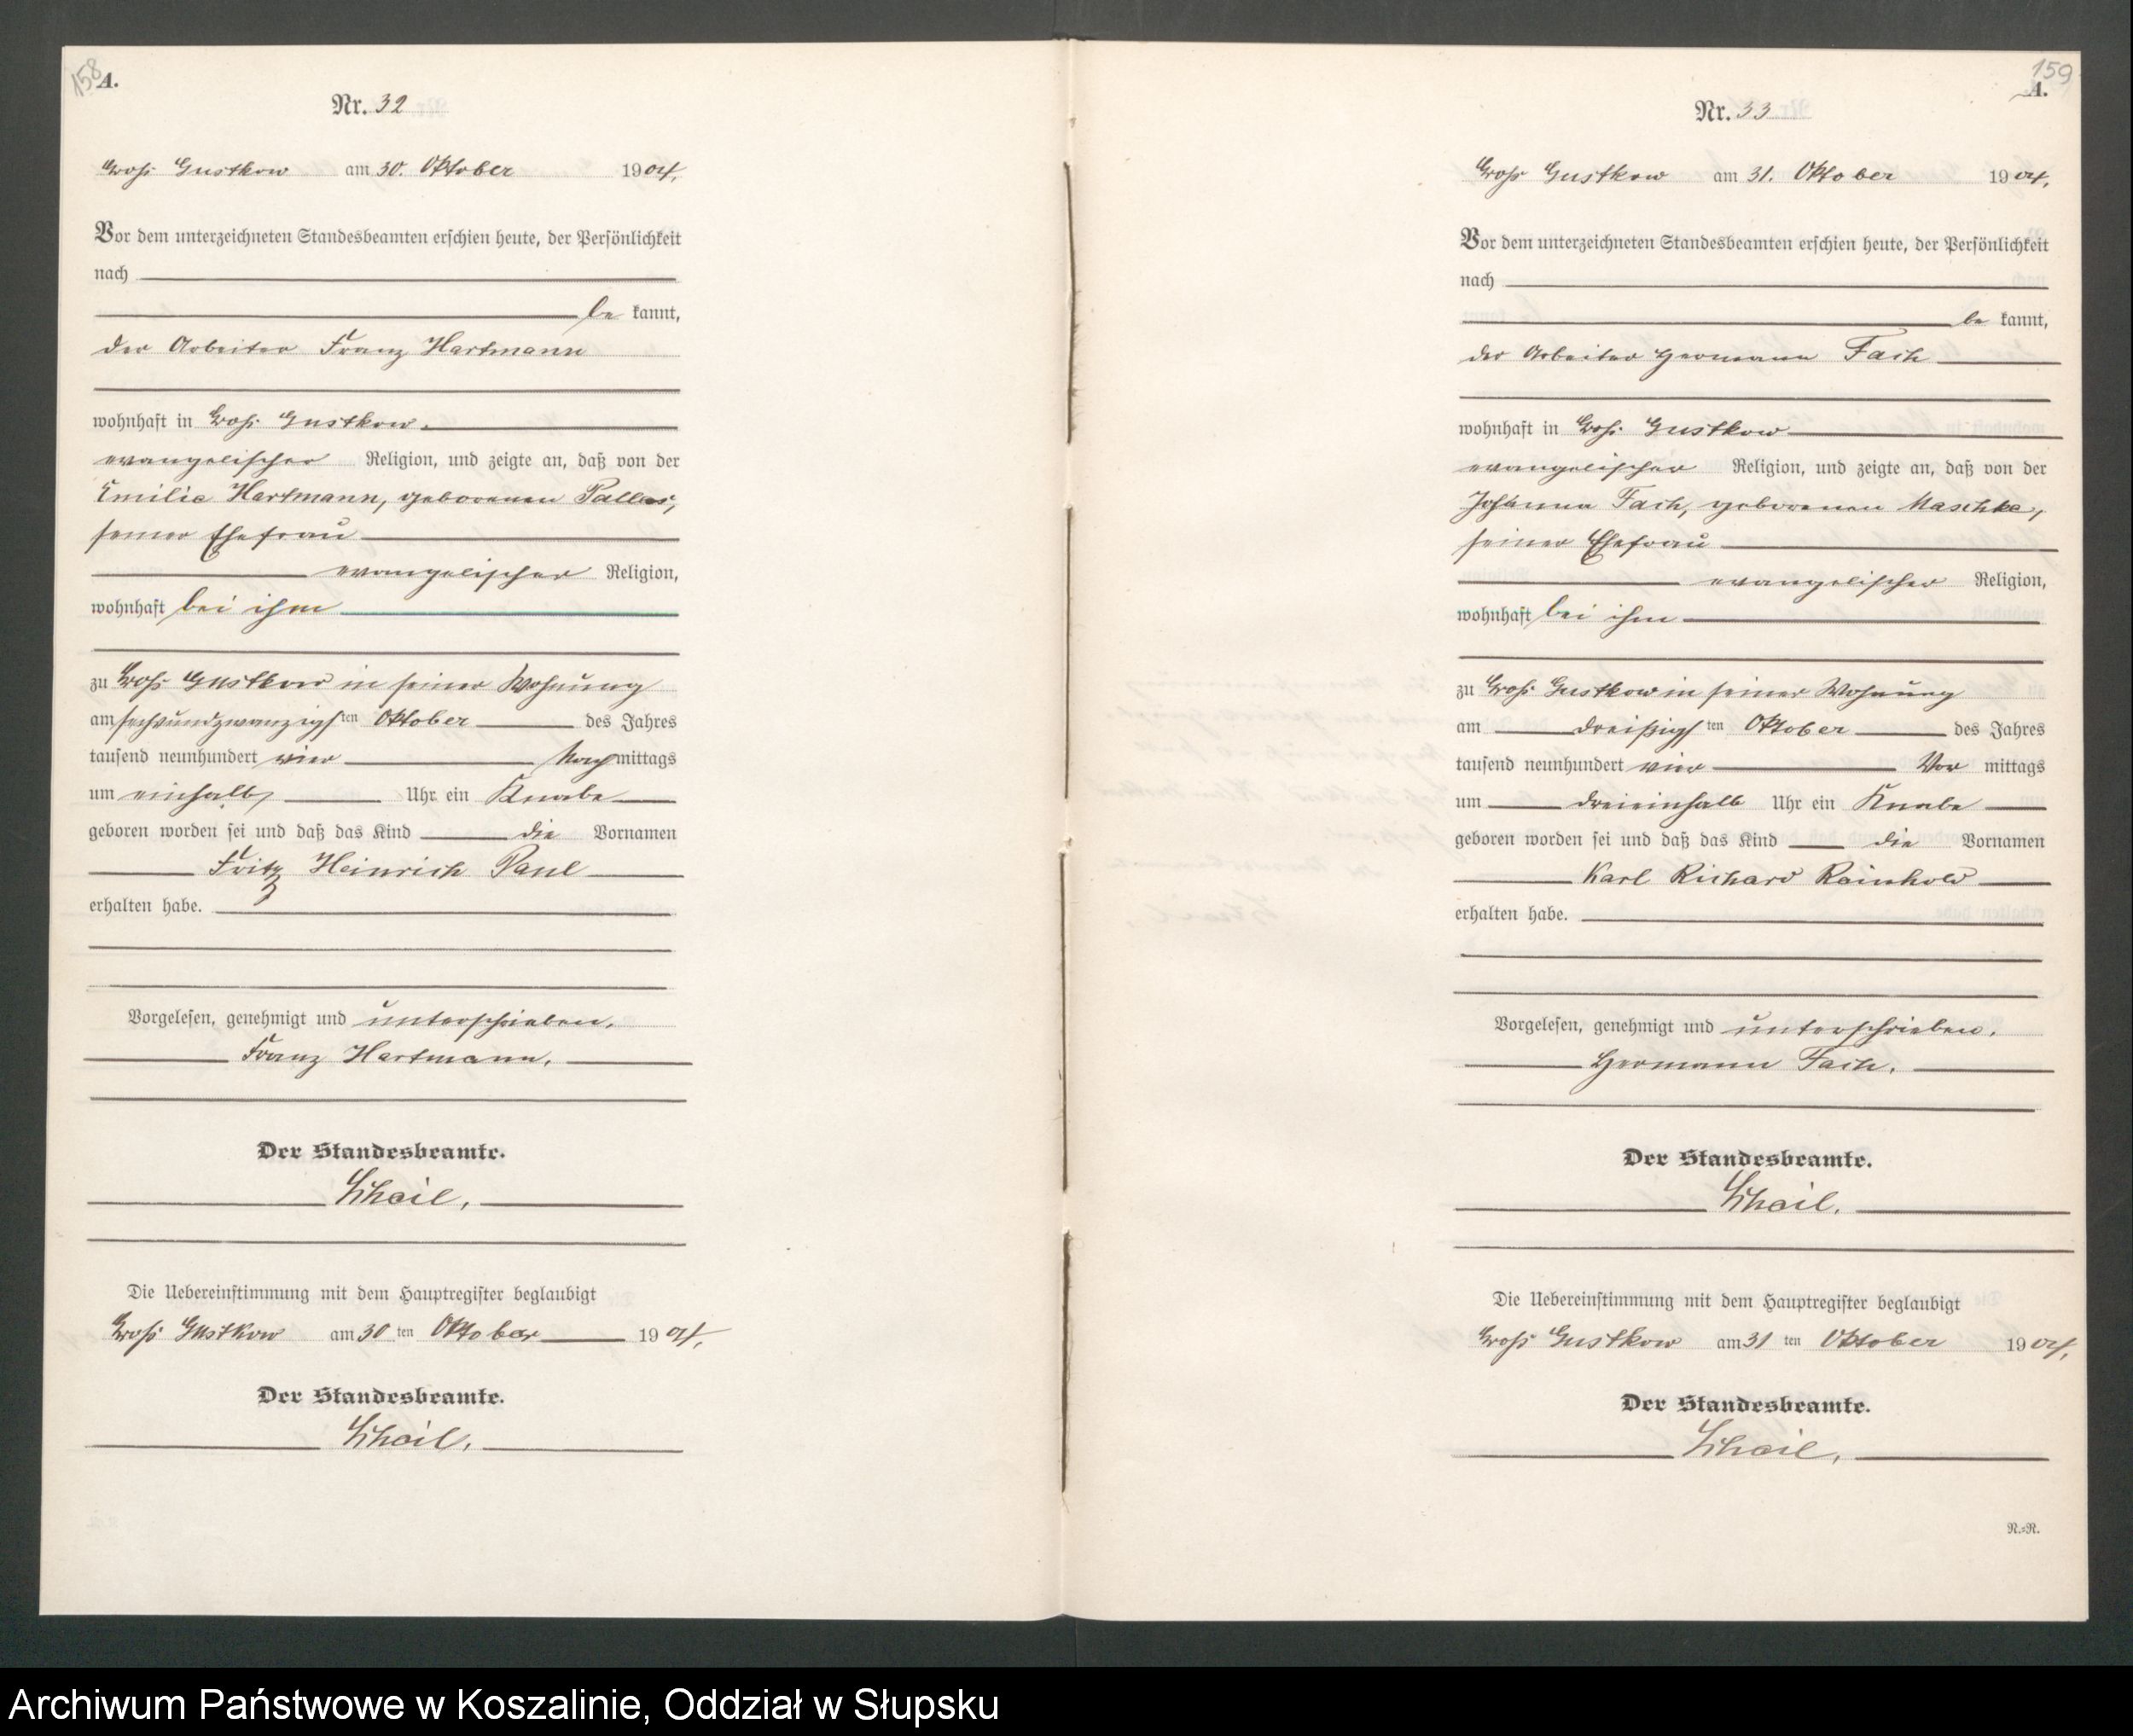 158
A.
Nr. 32
Groß Gustkow am 30. Oktober 1904.
Vor dem unterzeichneten Standesbeamten erschien heute, der Persönlichkeit
nach
be kannt,
der Arbeiter Franz Hartmann
wohnhaft in Groß Gustkow.
evangelischer Religion, und zeigte an, daß von der
Emilie Hartmann, geborenen
seiner Ehefrau
evangelischer Religion,
wohnhaft bei ihm
zu Groß Gustkow in seiner Wohnung
am sechsundzwanzigsten Oktober des Jahres
tausend neunhundert vier Nachmittags
um einhalb Uhr ein Knabe
geboren worden sei und daß das Kind die Vornamen
Fritz Heinrich Paul
erhalten habe.
Vorgelesen, genehmigt und unterschrieben.
Franz Hartmann.
Der Standesbeamte.
Die Uebereinstimmung mit dem Hauptregister beglaubigt
Groß Gustkow am 30 ten Oktober 1904.
Der Standesbeamte.
159
A.
Nr. 33
Groß Gustkow am 31. Oktober 1904.
Vor dem unterzeichneten Standesbeamten erschien heute, der Persönlichkeit
nach
be kannt,
der Arbeiter Hermann Fach
wohnhaft in Groß Gustkow
evangelischer Religion, und zeigte an, daß von der
Johanna Fach, geborenen Maschke,
seiner Ehefrau
evangelischer Religion,
wohnhaft bei ihm
zu Groß Gustkow in seiner Wohnung
am dreißigsten Oktober des Jahres
tausend neunhundert vier Vor mittags
um dreieinhalb Uhr ein Knabe
geboren worden sei und daß das Kind die Vornamen
Karl Richard Reinhold
erhalten habe.
Vorgelesen, genehmigt und unterschrieben.
Hermann Fach.
Der Standesbeamte.
Die Uebereinstimmung mit dem Hauptregister beglaubigt
Groß Gustkow am 31 ten Oktober 1904.
Der Standesbeamte.
N.=N.
Archiwum Państwowe w Koszalinie, Oddział w Słupsku